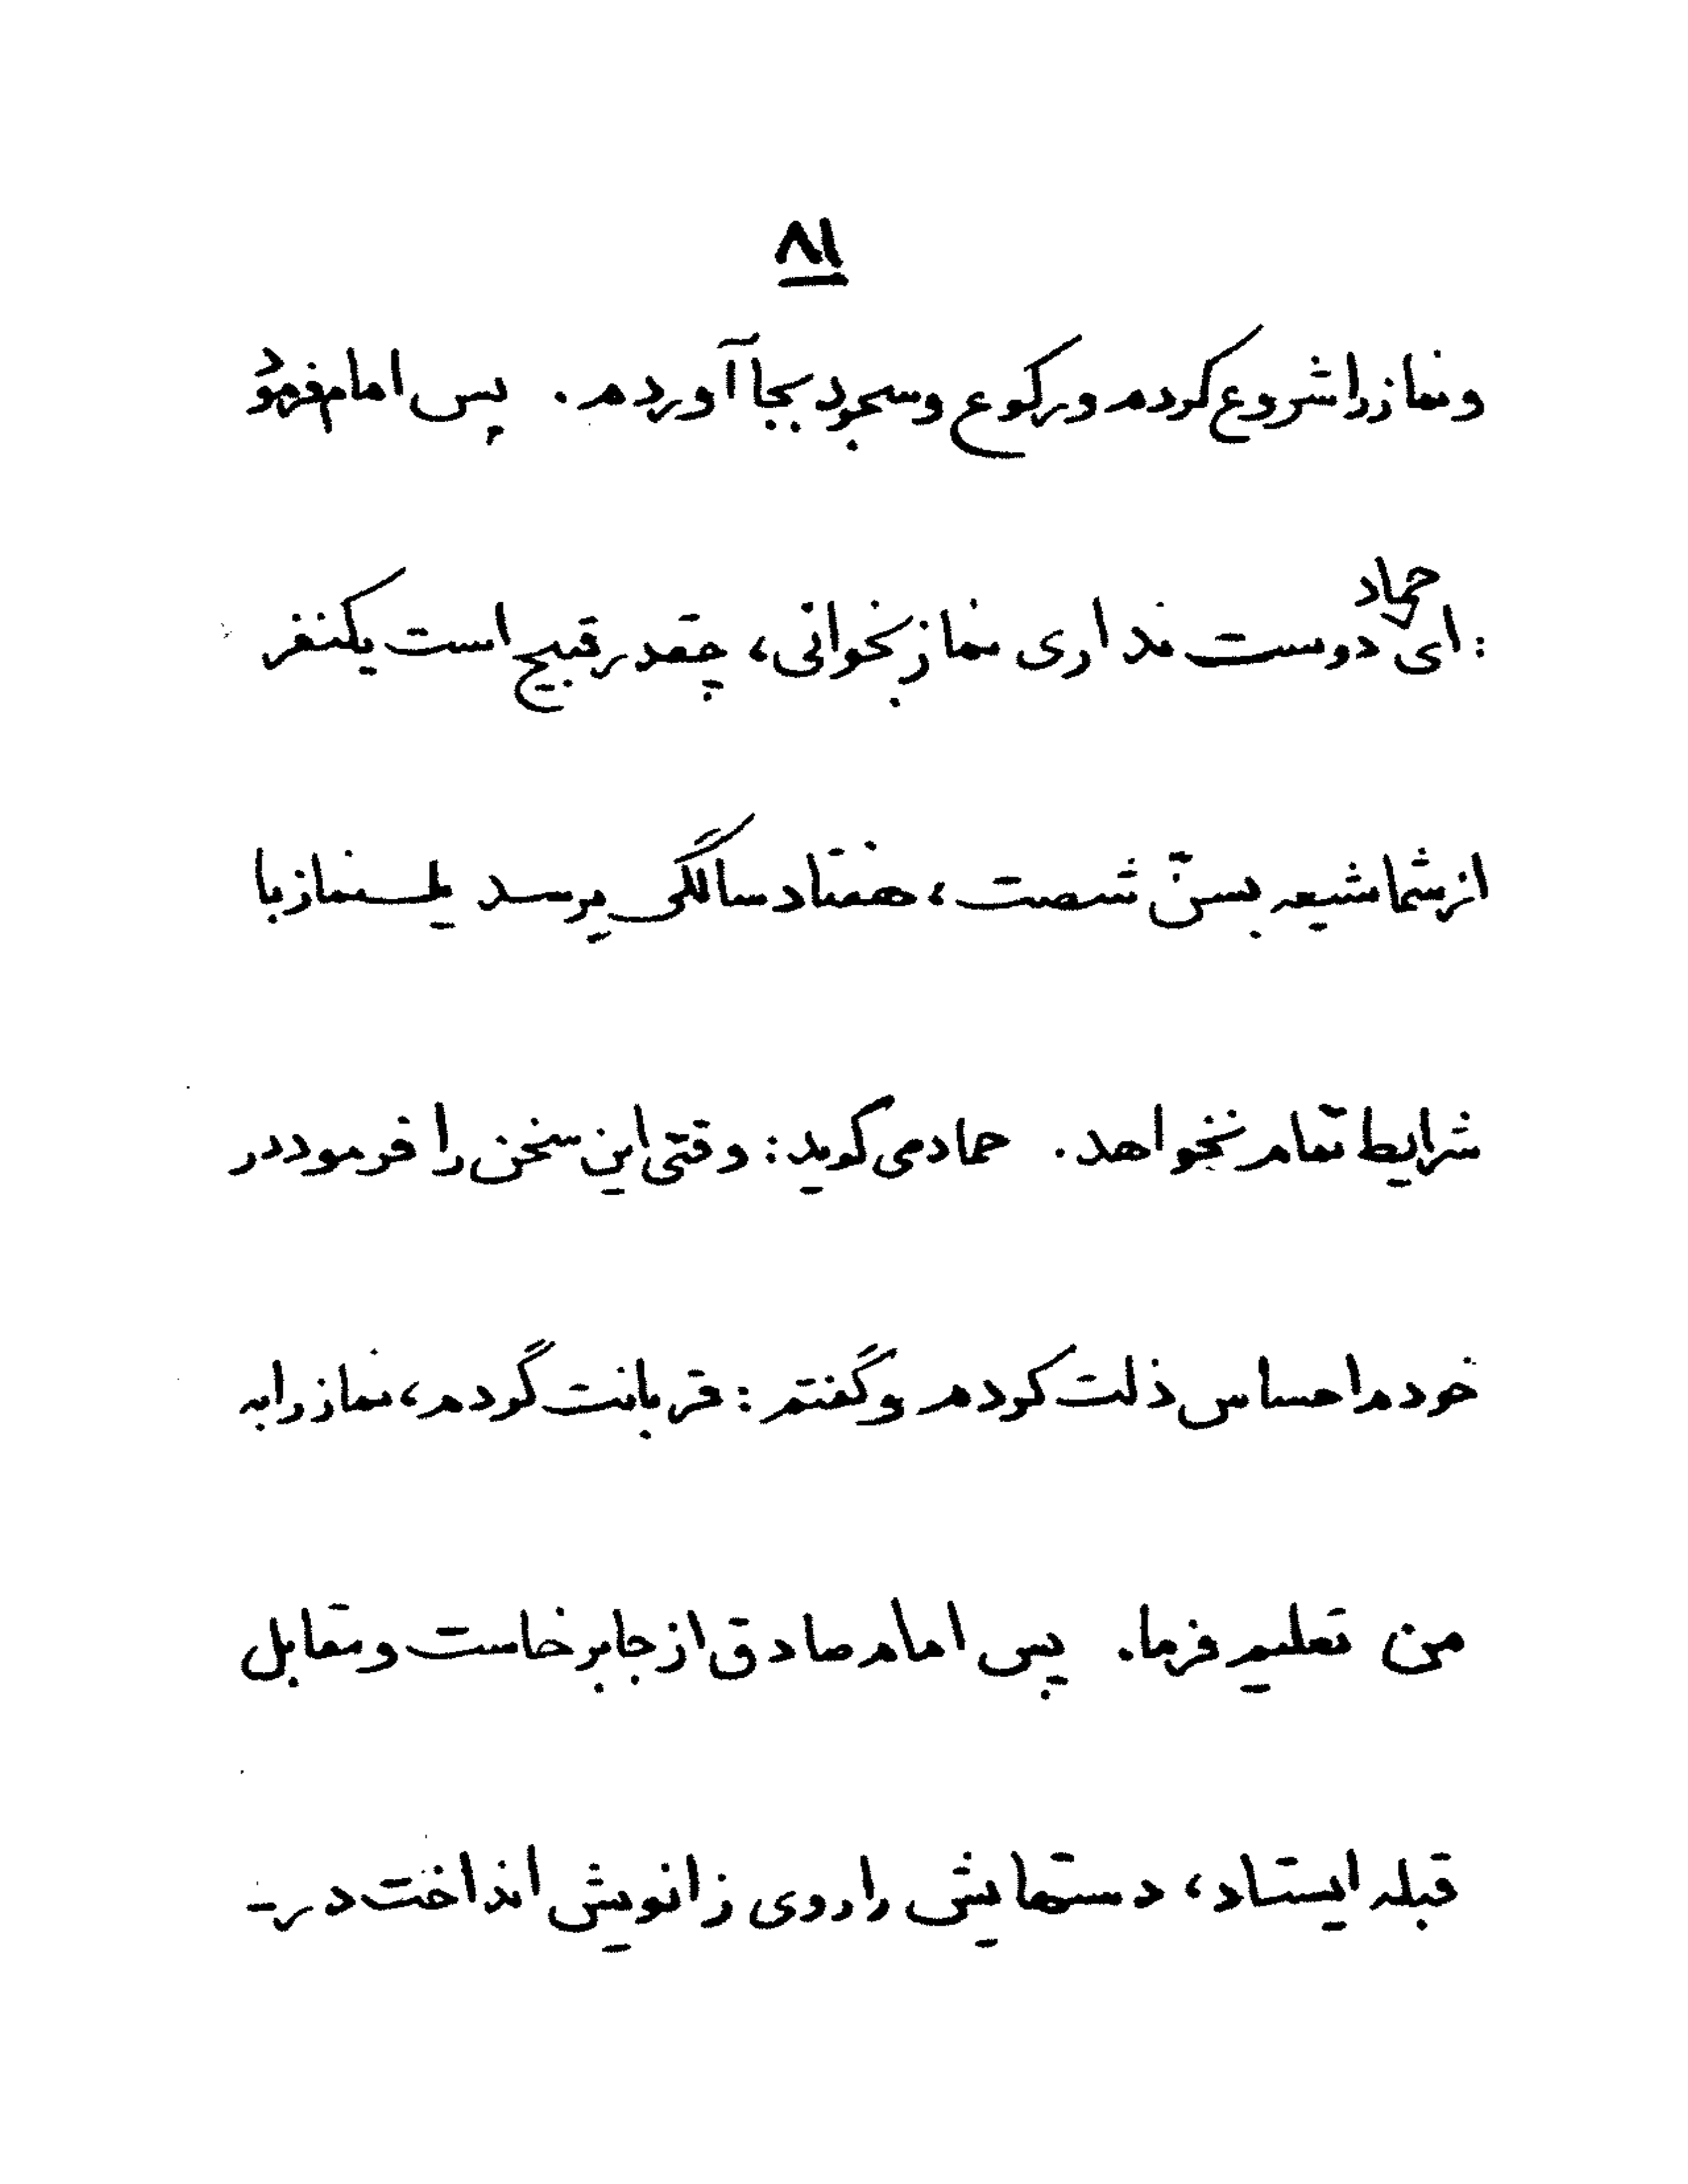 ۸۱
و نماز را شروع کردم و رکوع و سجود بجا آوردم. پس امام فرمود
: ای حماد دوست نداری نماز بخوانی، چقدر قبیح است یکنفر
از شما شیعه بسنّ شصت، هفتاد سالگی برسد یک نماز با
شرایط تمام نخواهد. حماد می گوید: وقتی این سخن را فرمود در
خودم احساس ذلت کردم و گفتم: قربانت گردم، نماز را به
من تعلیم فرما. پس امام صادق از جا برخاست و مقابل
قبله ایستاد، دستهایش را روی زانویش انداخت در-